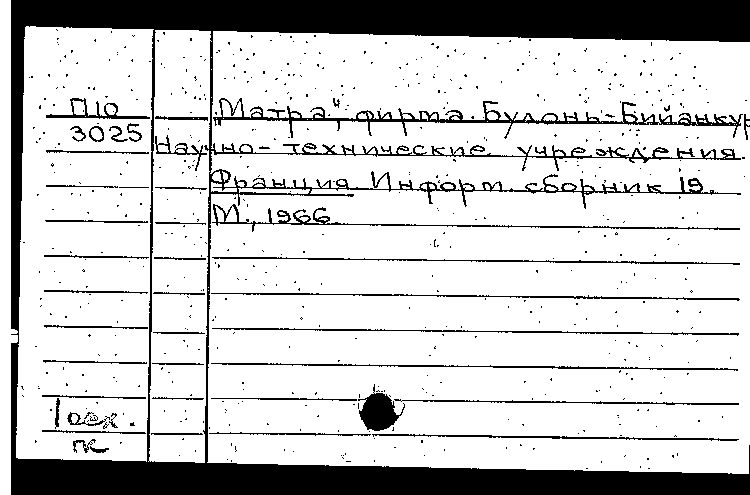 П10
3025
"Матра", фирма. Булонь-Бийанкур
Научно-технические учреждения.
Франция. Информ. сборник 19.
М., 1966.
пк